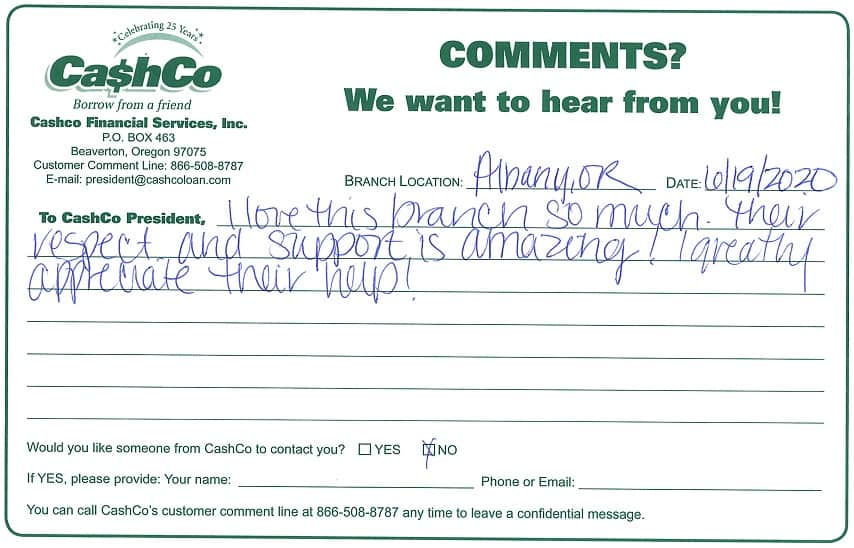 Celebrating 25 Years
Ca$hCo
Borrow from a friend
Cashco Financial Services, Inc.
P.O. BOX 463
Beaverton, Oregon 97075
Customer Comment Line: 866-508-8787
E-mail: president@cashcoloan.com
COMMENTS?
We want to hear from you!
BRANCH LOCATION: Albany, OR DATE: 6/19/2020
To CashCo President, I love this branch so much. Their
respect and support is amazing! I greatly
appreciate their help!
Would you like someone from CashCo to contact you? YES NO
If YES, please provide: Your name: Phone or Email:
You can call CashCo's customer comment line at 866-508-8787 any time to leave a confidential message.